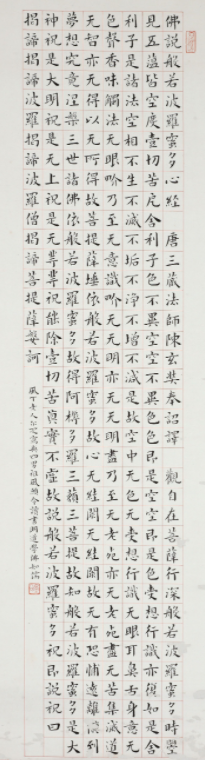 佛說般若波羅蜜多心經 唐三藏法師陳玄奘奉詔譯 觀自在菩薩行深般若波羅蜜多時曌
見五蘊皆空度壹切苦厄舍利子色不異空空不異色色即是空空即是色受想行識亦復如是舍
利子是諸法空相不生不滅不垢不淨不增不減是故空中无色无受想行識无眼耳鼻舌身意无
色聲香味觸法无眼吤乃至无意識吤无无明亦无无明盡乃至无老死亦无老死盡无苦集滅道
无智亦无得以无所得故菩提薩埵依般若波羅蜜多故心无絓閡无絓閡故无有恐怖遠離顛到
夢想究竟涅槃三世諸佛依般若波羅蜜多故得阿耨多羅三藐三菩提故知般若波羅蜜多是大
神祝是大明祝是无上祝是无等等祝能除壹切苦真實不虛故說般若波羅蜜多祝即說祝曰
揭諦揭諦波羅揭諦波羅僧揭諦菩提薩婆訶